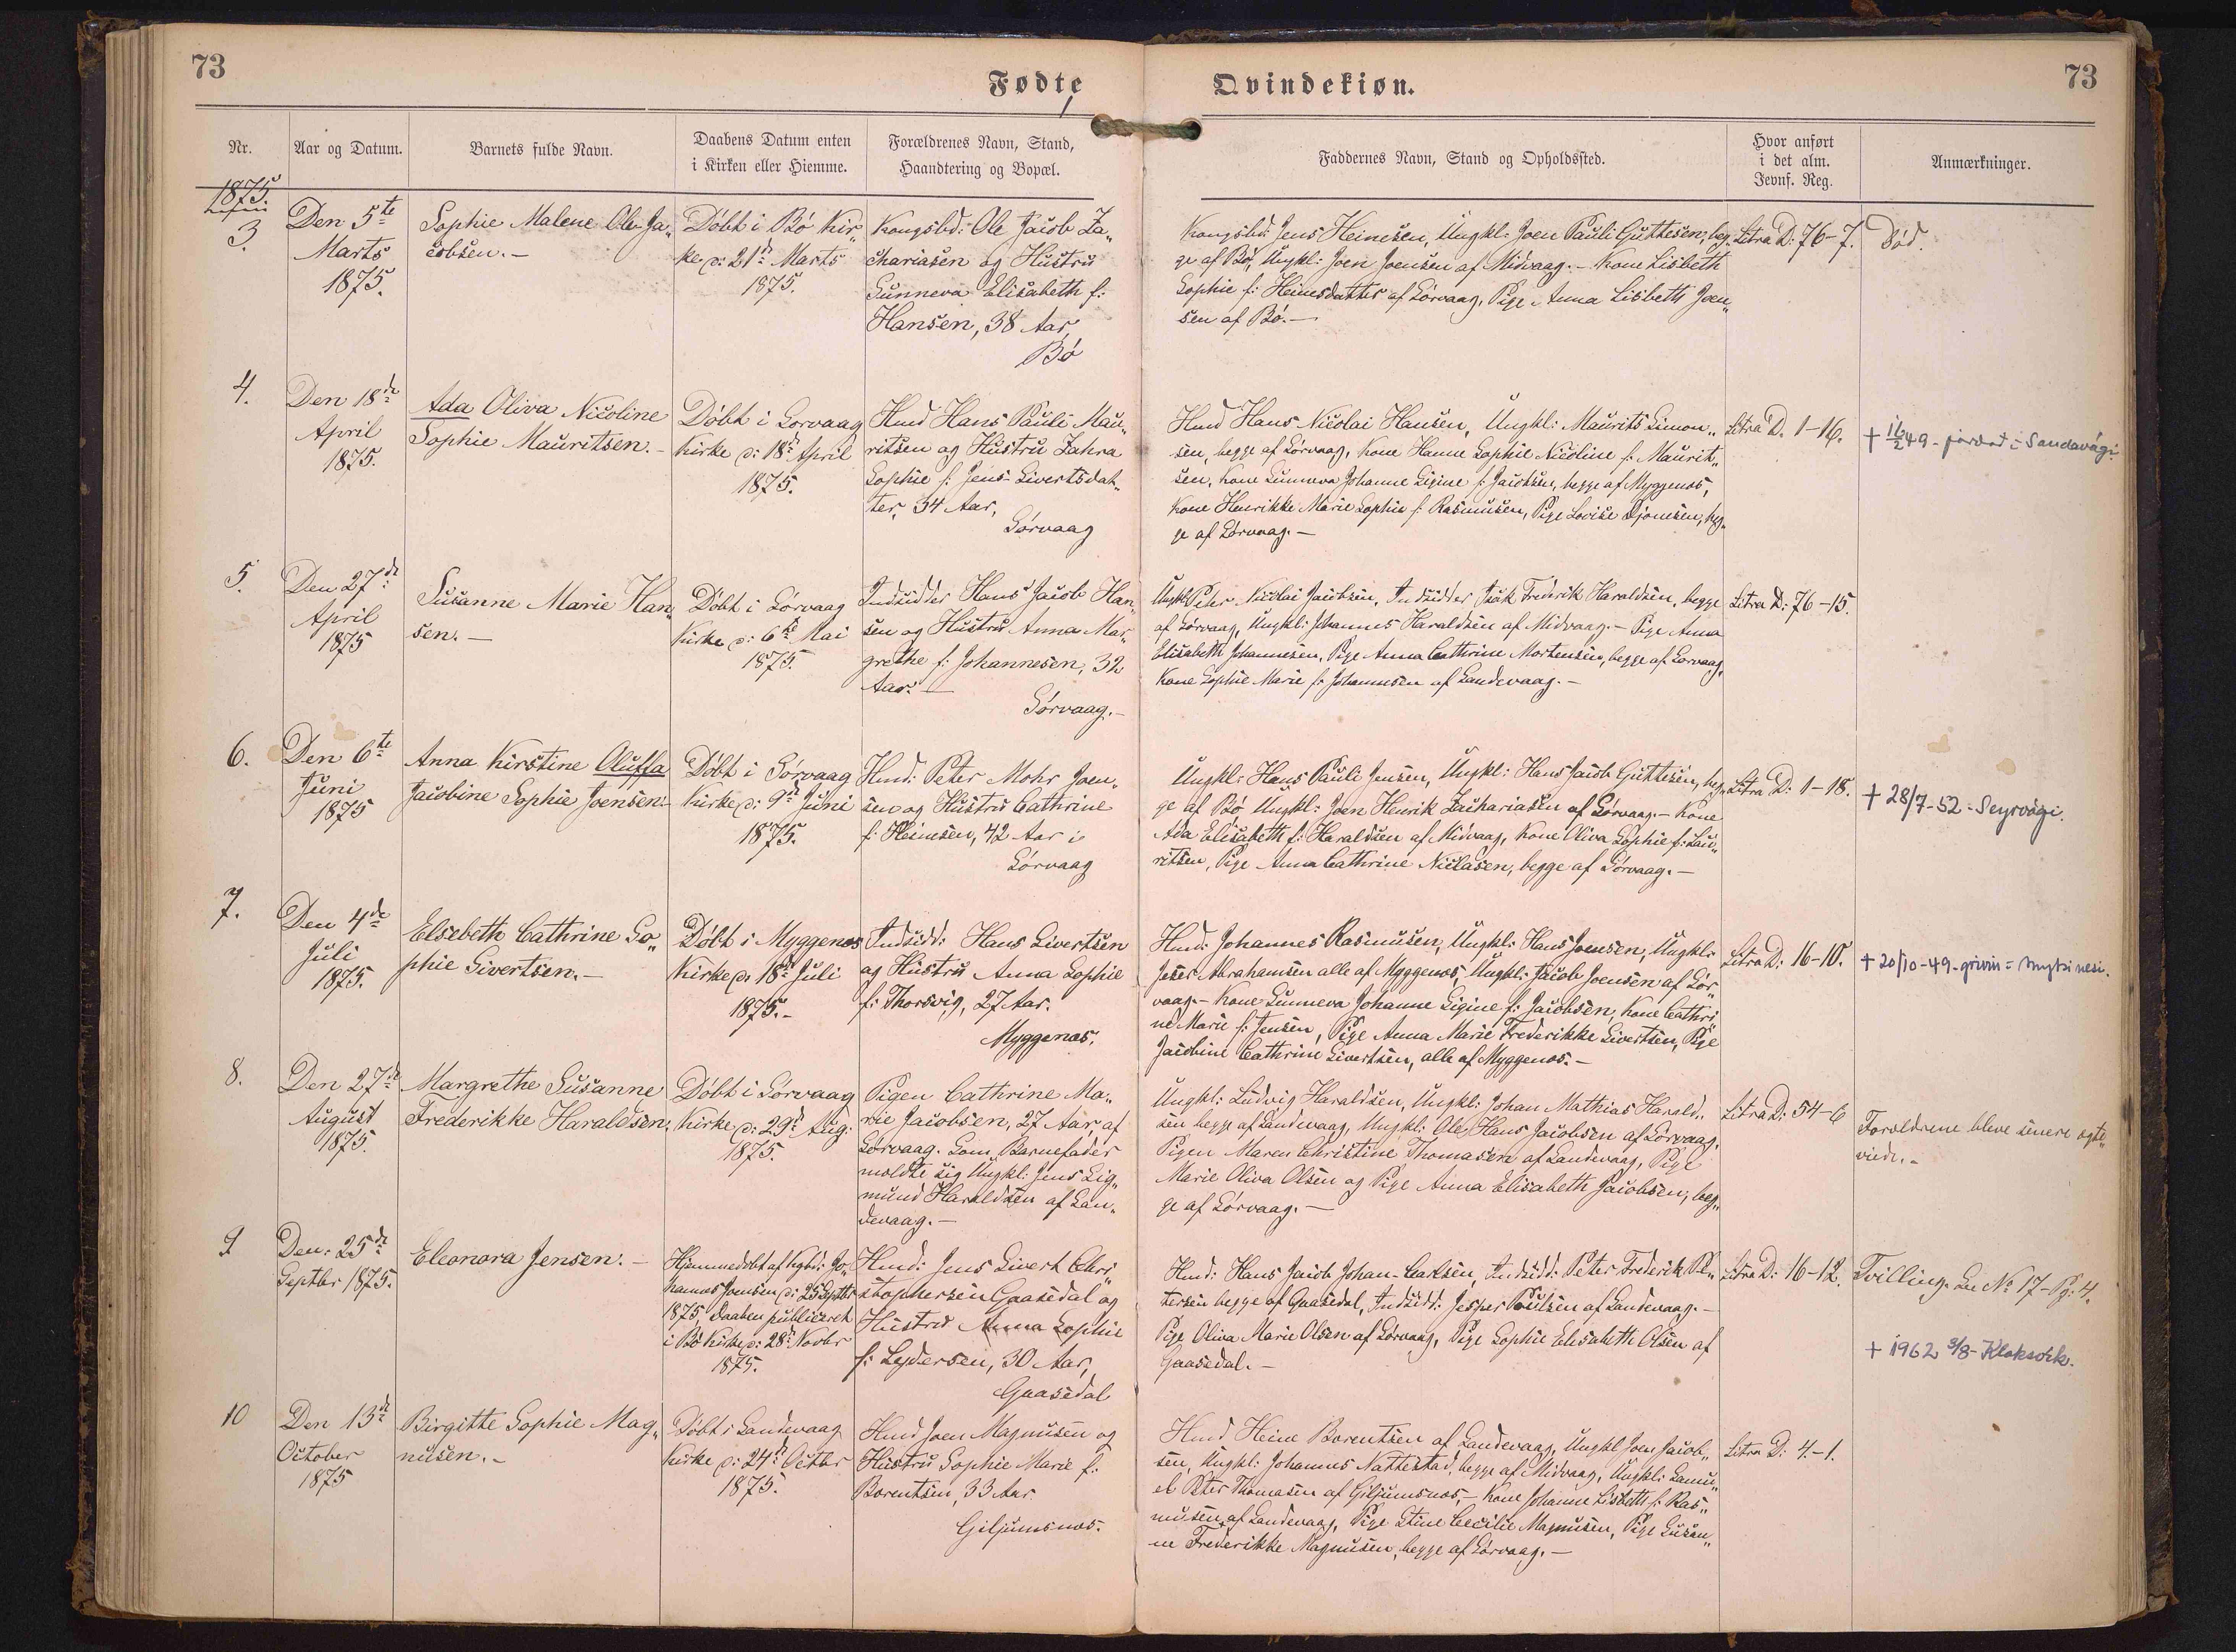 73
Fødte
Qvindekiøn.
73
Nr.
Aar og Datum.
Barnets fulde Navn.
Daabens Datum enten
i Kirken eller Hiemme.
Forældrenes Navn, Stand,
Haandtering og Bopæl.
Faddernes Navn, Stand og Opholdssted.
Hvor anført
i det alm.
Jevnf. Reg.
Anmærkninger.
1875.
3.
Den 5te
Marts
1875.
Sophie Malene Ole-Ja„
cobsen.-
Döbt i Bö Kir„
ke d: 21d Marts
1875.
Kongsbd: Ole Jacob Za„
chariasen og Hustru
Sunneva Elisabeth f:
Hansen, 38 Aar,
Bö
Kongsbd: Jens Heinesen, Ungkl: Joen Pauli Guttesen, beg„
ge af Bö, Ungkl: Joen Joensen af Midvaag.- Kone Lisbeth
Sophie f: Heinesdatter af Sörvaag, Pige Anna Lisbeth Joen„
sen af Bö.-
Litra D: 76-7.
Död.
4.
Den 18de
April
1875.
Ada Oliva Nicoline
Sophie Mauritsen.-
Döbt i Sorvaag
Kirke d: 18d April
1875.
Hmd Hans Pauli Mau„
ritsen og Hustru Zahra
Sophie f: Jens-Sivertsdat„
ter, 34 Aar,
Sörvaag
Hmd Hans Nicolai Hansen, Ungkl: Maurits Simon„
sen, begge af Sörvaag, Kone Hanne Sophie Nicoline f: Maurit„
sen, Kone Sunneva Johanne Sigine f: Jacobsen, begge af Myggenæs,
Kone Henrikke Marie Sophie f: Rasmusen, Pige Lovise Djonesen, beg„
ge af Sörvaag.-
Litra D. 1-16.
+ 16/2 49 - jarðað í Sandavági.
5.
Den 27de
April
1875
Susanne Marie Han„
sen.-
Döbt i Sörvaag
Kirke d: 6te Mai
1875.
Indsidder Hans Jacob Han„
sen og Hustru Anna Mar„
grethe f: Johannesen, 32
Aar.-
Sörvaag.-
Ungkl Peter Nicolai Jacobsen, Indsidder Isak Frederik Haraldsen, begge
af Sörvaag, Ungkl: Johannes Haraldsen af Midvaag.- Pige Anna
Elisabeth Johannesen, Pige Anna Cathrine Mortensen, begge af Sorvaag,
Kone Sophie Marie f: Johannesen af Sandevaag.-
Litra D: 76-15.
6.
Den 6te
Juni
1875
Anna Kirstine Oluffa
Jacobine Sophie Joensen.
Döbt i Sörvaag
Kirke d: 9d Juni
1875.
Hmd: Peter Mohr Joen„
sen og Hustru Cathrine
f: Heinesen, 42 Aar i
Sörvaag
Ungkl: Hans Pauli Jensen, Ungkl: Hans Jacob Guttesen, beg„
ge af Bö, Ungkl: Joen Henrik Zachariasen af Sörvaag.- Kone
Ada Elisabeth f: Haraldsen af Midvaag, Kone Oliva Sophie f: Lau„
ritsen, Pige Anna Cathrine Niclasen, begge af Sörvaag.-
Litra D: 1-18.
+ 28/7-52 - Seyrvági.
7.
Den 4de
Juli
1875.
Elsebeth Cathrine So„
phie Sivertsen.-
Döbt i Myggenæs
Kirke d: 18d Juli
1875.-
Indsidd: Hans Sivertsen
og Hustru Anna Sophie
f: Thorsvig, 27 Aar.
Myggenæs.
Hmd: Johannes Rasmusen, Ungkl: Hans Joensen, Ungkl:
Joser Abrahamsen alle af Myggenæs, Ungkl: Jacob Joensen af Sör„
vaag.- Kone Sunneva Johanne Sigine f: Jacobsen, Kone Cathri
ne Marie f: Jensen, Pige Anna Marie Frederikke Sivertsen, Pige
Jacobine Cathrine Sivertsen, alle af Myggenæs.-
Litra D: 16-10.
+ 20/10-49 - grivin í Mykinesi.
8.
Den 27de
August
1875.
Margrethe Susanne
Frederikke Haraldsen.
Döbt i Sorvaag
Kirke d: 29d Aug:
1875.
Pigen Cathrine Ma„
rie Jacobsen, 27 Aar, af
Sörvaag. Som Barnefader
meldte sig Ungkl: Jens Sig„
mund Haraldsen af San„
devaag.-
Ungkl: Ludvig Haraldsen, Ungkl: Johan Mathias Harald„
sen begge af Sandevaag, Ungkl: Ole Hans Jacobsen af Sörvaag,
Pigen Maren Christine Thomasen af Sandevaag, Pige
Marie Oliva Olsen og Pige Anna Elisabeth Jacobsen, beg„
ge af Sörvaag.-
Litra D: 54-6
Forældrene bleve senere ægte„
viede.-
9
Den: 25de
Septbr 1875.
Eleonora Jensen.-
Hjemmedöbt af Kgbd: Jo„
hannes Joensen d: 25 Septbr
1875, Daaben publiceret
i Bö Kirke d: 28d Novbr
1875.
Hmd: Jens Sivert Chri„
stophersen Gaasedal og
Hustru Anna Sophie
f: Lydersen, 30 Aar,
Gaasedal
Hmd: Hans Jacob Johan-Carlsen, Indsidd: Peter Frederik Pe„
tersen begge af Gaasedal, Indsidd: Jesper Poulsen af Sandevaag.-
Pige Oliva Marie Olsen af Sörvaag, Pige Sophie Elisabeth Olsen af
Gaasedal.-
Litra D: 16-12.
Tvilling. Se No 17 - Pg. 4.
+ 1962 3/8 - Klaksvík.
10
Den 13de
October
1875
Birgitte Sophie Mag„
nusen.-
Döbt i Sandevaag
Kirke d: 24d Octbr
1875.
Hmd Joen Magnusen og
Hustru Sophie Marie f:
Barentsen, 33 Aar
Giljumsnæs.
Hmd Heine Barentsen af Sandevaag, Ungkl Joen Jacob„
sen, Ungkl: Johannes Nattestad, begge af Midvaag, Ungkl: Samu„
el Peter Thomasen af Giljumsnæs,- Kone Johanne Lisbeth f: Ras„
musen, af Sandevaag, Pige Stine Cecilie Magnusen, Pige Susan„
ne Frederikke Magnusen, begge af Sörvaag.-
Litra D: 4-1.